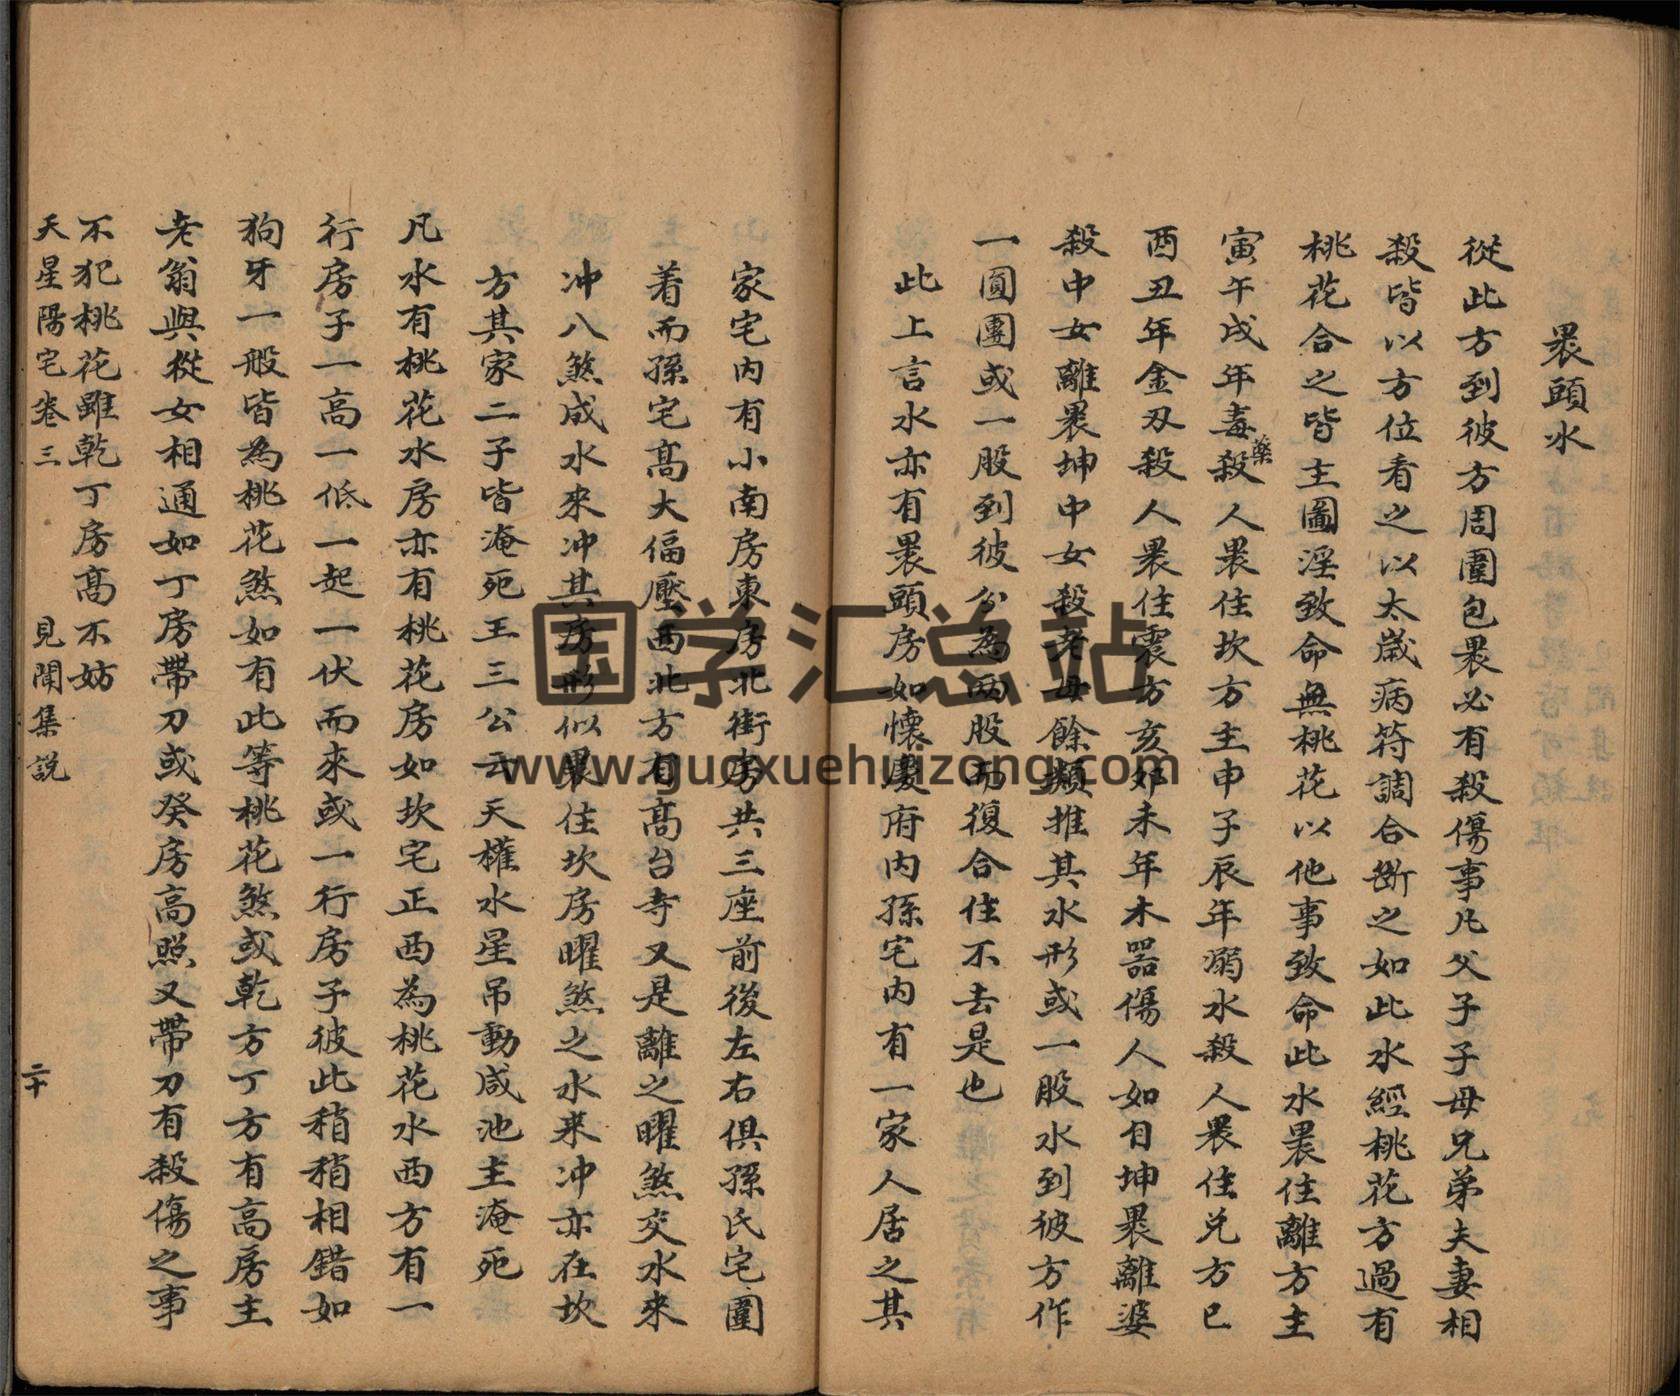 裹頭水
從此方到彼方周圍包裹必有殺傷事凡父子子母兄弟夫妻相
殺皆以方位看之以太歲病符調合斷之如此水經桃花方過有
桃花合之皆主圖淫致命無桃花以他事致命此水裹住離方主
寅午戌年毒藥殺人裹住坎方主申子辰年溺水殺人裹住兌方巳
酉丑年金刃殺人裹住震方亥卯未年木器傷人如自坤裹離婆
殺中女離裹坤中女殺老母餘類推其水形或一股水到彼方作
一圓團或一股到彼分為兩股而復合住不去是也
此上言水亦有裹頭房如懷慶府内孫宅内有一家人居之其
家宅内有小南房東房北街房共三座前後左右俱孫氏宅圍
着而孫宅高大偪壓西北方有高台寺又是離之曜煞交水來
冲八煞咸水來冲其房形似裹住坎房曜煞之水来冲亦在坎
方其家二子皆淹死王三公云天權水星吊動咸池主淹死
凡水有桃花水房亦有桃花房如坎宅正西為桃花水西方有一
行房子一高一低一起一伏而來或一行房子彼此稍稍相錯如
狗牙一般皆為桃花煞如有此等桃花煞或乾方丁方有高房主
老翁與從女相通如丁房帶刀或癸房高照又帶刀有殺傷之事
不犯桃花雖乾丁房高不妨
天星陽宅卷三 見聞集説 二十
国学汇总站
www.guoxuehuizong.com